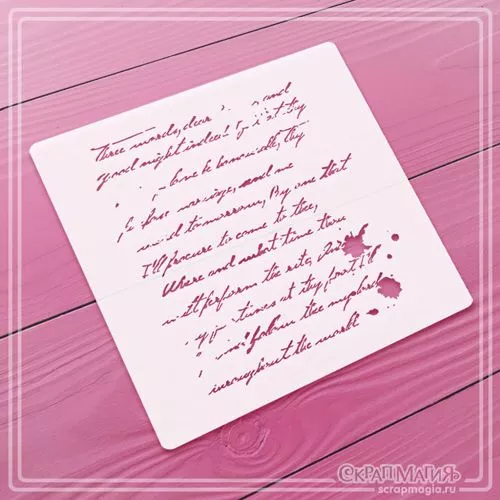 Three words, dear and
good night indeed
love be honourable, thy
marriage, and me
word tomorrow, By one that
I'll procure to come to thee,
Where and what time thou
wilt perform the rite, And
at thy foot I'll
follow
throughout the world
СкрапМагияЪ
scrapmagia.ru